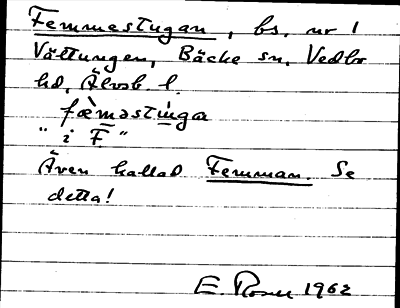 Femmestugan, bs. nr 1
Vättungen, Bäcke sn, Vedbo
hd, Älvsb l.
fæ̀məstùga
" i F "
Även kallad Femman. Se
detta!
E. Rosell 1962